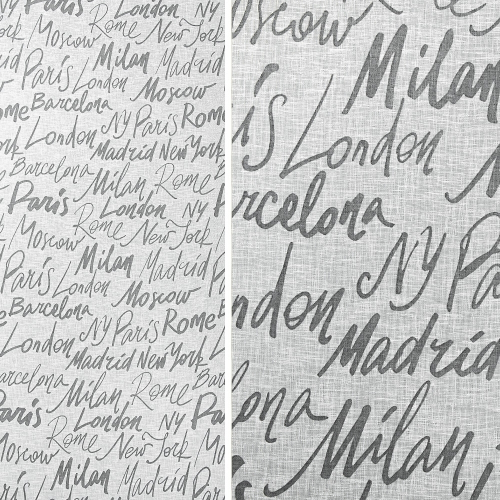 London NY
Moscow Rome New York
Milan Madrid
Paris London Moscow
Rome Barcelona NY Paris Rome
London Madrid New York
Barcelona Milan Rome
Paris London NY
Moscow Rome New York
Milan Madrid
Paris London Moscow
Barcelona NY Paris Rome
London Madrid New York
Barcelona Milan Rome
Paris London NY Pa
Moscow Rome New York Mo
Milan Madrid
Moscow
Milan
is London
rcelona
NY Pa
ndon
Madrid
ona
Milan